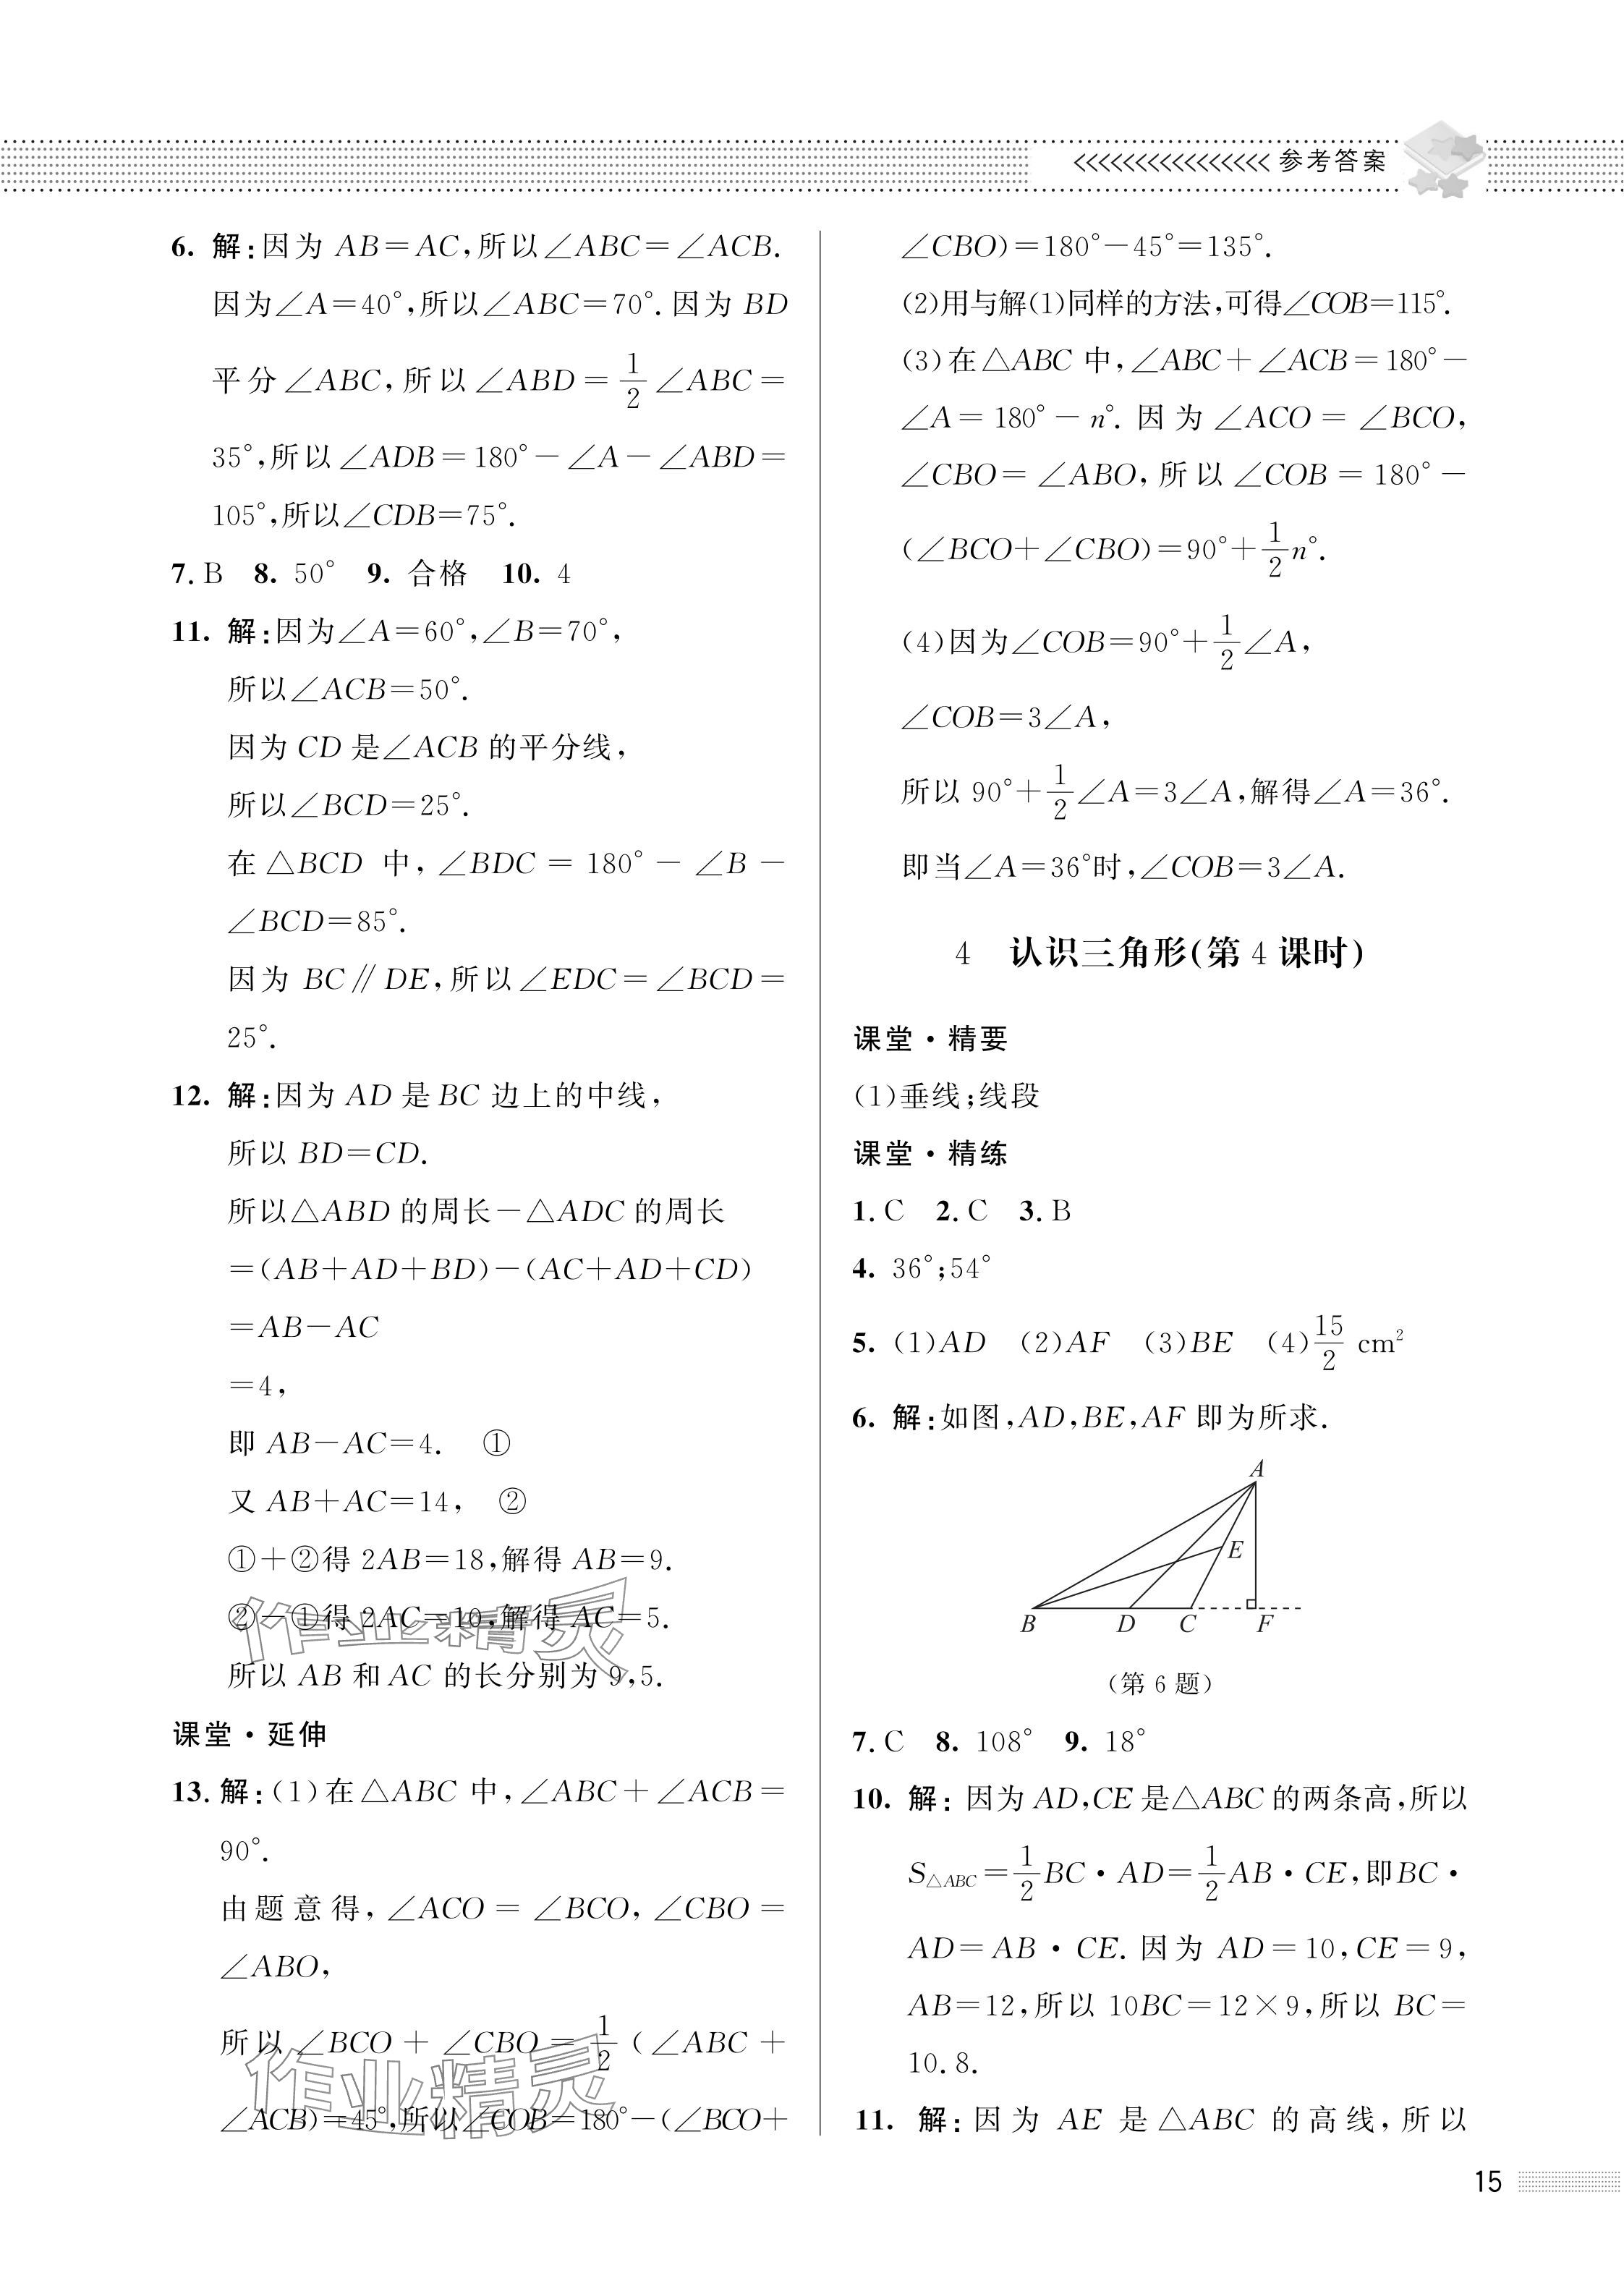 <<<<<<<<<<<<<<<< 参考答案
6. 解:因为 AB=AC,所以∠ABC=∠ACB.
因为∠A=40°,所以∠ABC=70°.因为 BD
平分∠ABC,所以∠ABD=1/2∠ABC=
35°,所以∠ADB=180°-∠A-∠ABD=
105°,所以∠CDB=75°.
7. B 8. 50° 9. 合格 10. 4
11. 解:因为∠A=60°,∠B=70°,
所以∠ACB=50°.
因为 CD 是∠ACB 的平分线,
所以∠BCD=25°.
在△BCD 中,∠BDC=180°-∠B-
∠BCD=85°.
因为 BC∥DE,所以∠EDC=∠BCD=
25°.
12. 解:因为 AD 是 BC 边上的中线,
所以 BD=CD.
所以△ABD 的周长-△ADC 的周长
=(AB+AD+BD)-(AC+AD+CD)
=AB-AC
=4,
即 AB-AC=4. ①
又 AB+AC=14, ②
①+②得 2AB=18,解得 AB=9.
②-①得 2AC=10,解得 AC=5.
作业精灵
所以 AB 和 AC 的长分别为 9,5.
课堂·延伸
13. 解:(1)在△ABC 中,∠ABC+∠ACB=
90°.
由题意得,∠ACO=∠BCO,∠CBO=
∠ABO,
所以∠BCO+∠CBO=1/2(∠ABC+
作业精灵
∠ACB)=45°,所以∠COB=180°-(∠BCO+
∠CBO)=180°-45°=135°.
(2)用与解(1)同样的方法,可得∠COB=115°.
(3)在△ABC 中,∠ABC+∠ACB=180°-
∠A=180°-n°.因为∠ACO=∠BCO,
∠CBO=∠ABO,所以∠COB=180°-
(∠BCO+∠CBO)=90°+1/2n°.
(4)因为∠COB=90°+1/2∠A,
∠COB=3∠A,
所以 90°+1/2∠A=3∠A,解得∠A=36°.
即当∠A=36°时,∠COB=3∠A.
4 认识三角形(第 4 课时)
课堂·精要
(1)垂线;线段
课堂·精练
1. C 2. C 3. B
4. 36°;54°
5. (1)AD (2)AF (3)BE (4)15/2 cm²
6. 解:如图,AD,BE,AF 即为所求.
A
E
B D C F
(第 6 题)
7. C 8. 108° 9. 18°
10. 解:因为 AD,CE 是△ABC 的两条高,所以
S△ABC=1/2BC·AD=1/2AB·CE,即BC·
AD=AB·CE.因为 AD=10,CE=9,
AB=12,所以 10BC=12×9,所以 BC=
10.8.
11. 解:因为 AE 是△ABC 的高线,所以
15